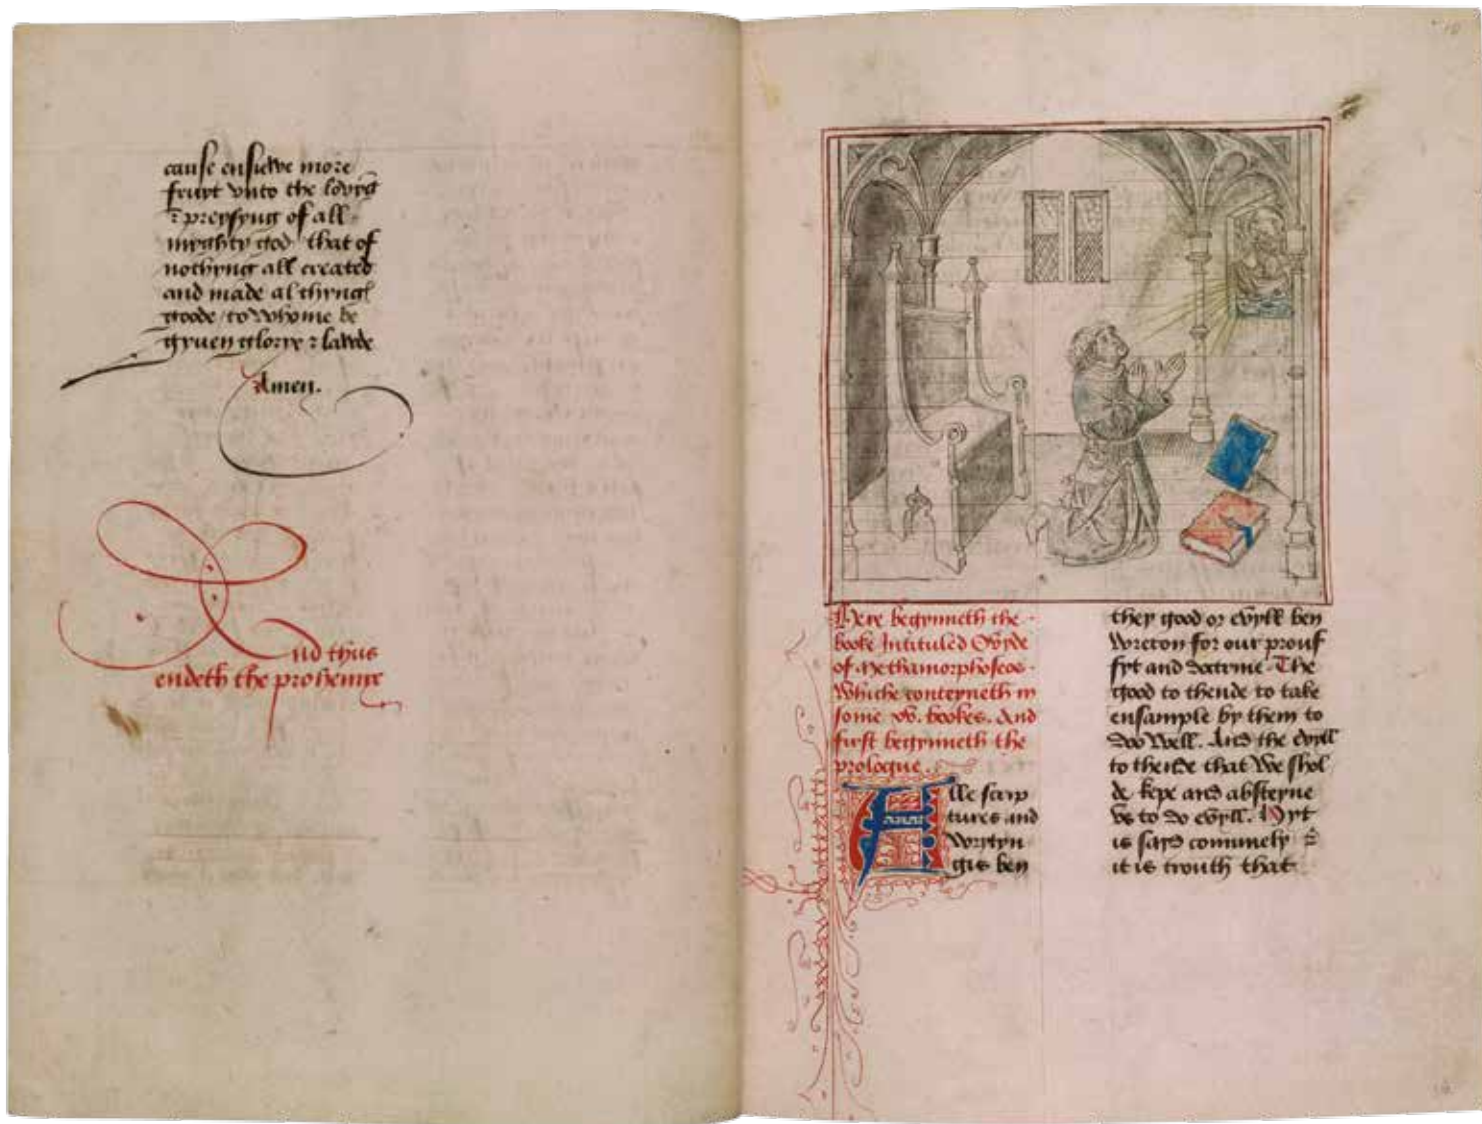 cause ensiewe more
fruyt vnto the lovyng
⁊ preysyng of all
myghty god that of
nothyng all created
and made al thyngꝭ
goode / to whome be
gyuen glorye ⁊ lawde
Amen.
And thus
endeth the prohemye
Here begynneth the
booke Intituled Ovyde
of Methamorphoseos
Whiche conteyneth in
some xv. bookes. And
first begynneth the
prologue
Alle scrip
tures and
wrytyn
gis ben
they good or evyll ben
wreton for our prouf
fyt and doctrine The
good to thende to take
ensample by them to
doo well. And the evyll
to thende that we shol
de kepe and absteyne
vs to do evyll. Hyt
is sayd comunely ⁊
it is trouth that